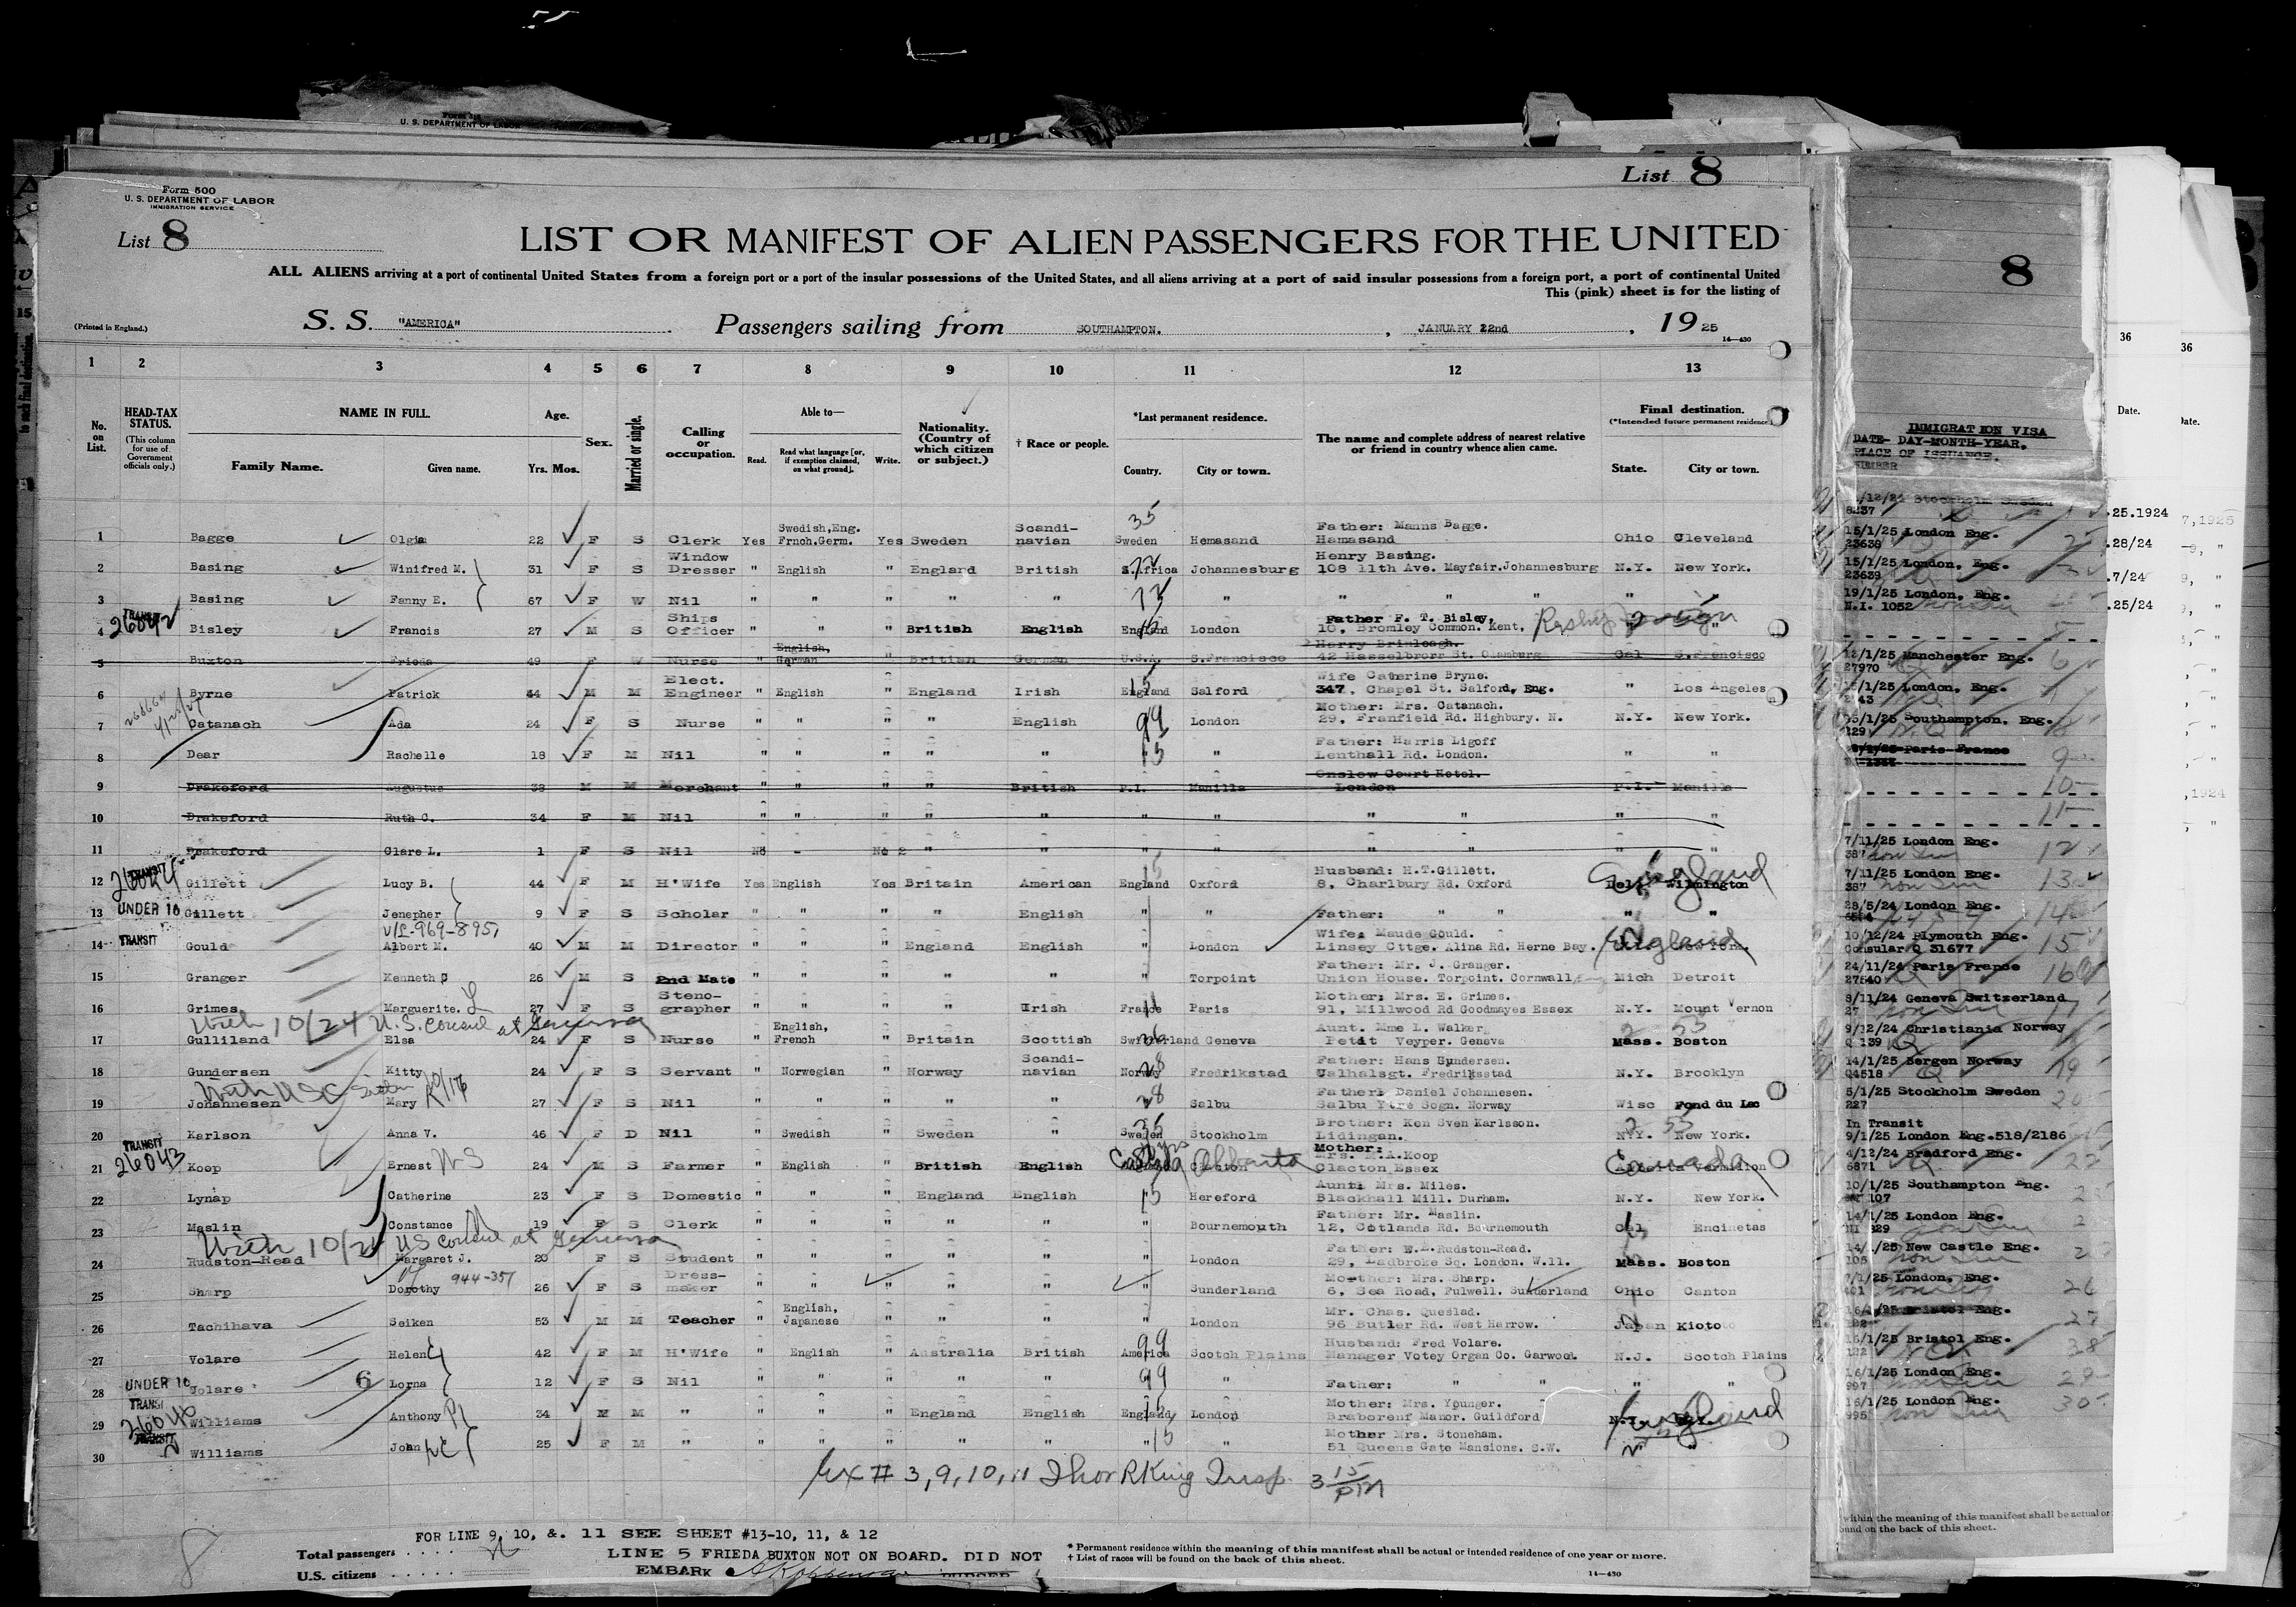 Form 500
U. S. DEPARTMENT OF LABOR
IMMIGRATION SERVICE
List 8
List 8
8
LIST OR MANIFEST OF ALIEN PASSENGERS FOR THE UNITED
ALL ALIENS arriving at a port of continental United States from a foreign port or a port of the insular possessions of the United States, and all aliens arriving at a port of said insular possessions from a foreign port, a port of continental United
This (pink) sheet is for the listing of
(Printed in England.)
S. S. "AMERICA" Passengers sailing from SOUTHAMPTON. , JANUARY 22nd , 19 25
14—430
1 2 3 4 5 6 7 8 9 10 11 12 13
No. on List.
HEAD-TAX STATUS.
(This column for use of Government officials only.)
NAME IN FULL.
Family Name. Given name.
Age.
Yrs. Mos.
Sex.
Married or single.
Calling or occupation.
Able to—
Read. Read what language [or, if exemption claimed, on what ground]. Write.
Nationality. (Country of which citizen or subject.)
† Race or people.
*Last permanent residence.
Country. City or town.
The name and complete address of nearest relative or friend in country whence alien came.
Final destination.
(*Intended future permanent residence.)
State. City or town.
1 Bagge Olga 22 F S Clerk Yes Swedish, Eng. Frnch. Germ. Yes Sweden Scandinavian Sweden Hemasand Father: Manns Bagge. Hamasand Ohio Cleveland
2 Basing Winifred M. 31 F S Window Dresser " English " England British S.Africa Johannesburg Henry Basing. 108 11th Ave. Mayfair.Johannesburg N.Y. New York.
3 Basing Fanny E. 67 F W Nil " " " " " " " " " " " "
TRANSIT 26042
4 Bisley Francis 27 M S Ships Officer " " " British English England London Father F. T. Bisley, 10, Bromley Common. Kent,
5 Buxton Frieda 49 F W Nurse " English, German " British German U.S.A. S.Francisco Harry Brinleagh. 42 Hasselbrorr St. Olamburg Cal S.Francisco
6 Byrne Patrick 44 M M Elect. Engineer " English " England Irish England Salford Wife Catherine Bryne. 347, Chapel St. Salford, Eng. " Los Angeles
7 Catanach Ada 24 F S Nurse " " " " English London Mother: Mrs. Catanach. 29, Franfield Rd. Highbury. N. N.Y. New York.
8 Dear Rachelle 18 F M Nil " " " " " " " Father: Harris Ligoff Lenthall Rd. London. " "
9 Drakeford Augustus 38 M M Merchant " " " " British P.I. Manilla Onslow Court Hotel. London P.I. Manilla
10 Drakeford Ruth C. 34 F M Nil " " " " " " " " " " "
11 Drakeford Clare L. 1 F S Nil No - No " " " " " " " "
TRANSIT
12 Gillett Lucy B. 44 F M H'Wife Yes English Yes Britain American England Oxford Husband: H.T.Gillett. 8, Charlbury Rd. Oxford Del. Wilmington England
UNDER 16
13 Gillett Jenepher 9 F S Scholar " " " " English " " Father: " " " "
TRANSIT
14 Gould Albert M. 40 M M Director " " " England English " London Wife, Maude Gould. Linsey Cttge. Alina Rd. Herne Bay. England
15 Granger Kenneth 26 M S 2nd Mate " " " " " " Torpoint Father: Mr. J. Granger. Union House. Torpoint. Cornwall Mich Detroit
16 Grimes Marguerite. 27 F S Stenographer " " " " Irish France Paris Mother; Mrs. E. Grimes. 91, Millwood Rd Goodmayes Essex N.Y. Mount Vernon
With 10/24 U.S. Consul at Geneva
17 Gulliland Elsa 24 F S Nurse " English, French " Britain Scottish Switzerland Geneva Aunt. Mme L. Walker Petit Veyper. Geneva Mass. Boston
18 Gundersen Kitty 24 F S Servant " Norwegian " Norway Scandinavian Norway Fredrikstad Father: Hans Gundersen. Ualhalsgt. Fredriksstad N.Y. Brooklyn
19 Johannesen Mary 27 F S Nil " " " " " " Salbu Father: Daniel Johannesen. Salbu Ytre Sogn. Norway Wisc Fond du Lac
20 Karlson Anna V. 46 F D Nil " Swedish " Sweden " Sweden Stockholm Brother: Ken Sven Karlsson. Lidingan. N.Y. New York.
TRANSIT 26043
21 Koop Ernest 24 M S Farmer " English " British English Canada Alberta Mother: Mrs. E.A.Koop Clacton Essex Alberta Vermilion Canada
22 Lynap Catherine 23 F S Domestic " " " England English Hereford Aunt: Mrs. Miles. Blackhall Mill. Durham. N.Y. New York.
23 Maslin Constance 19 F S Clerk " " " " " " Bournemouth Father: Mr. Maslin. 12, Cotlands Rd. Bournemouth Cal Encinetas
With 10/24 US Consul at Geneva
24 Rudston-Read Margaret J. 20 F S Student " " " " " London Father: E.L.Rudston-Read. 29, Ladbroke Sq. London. W.11. Mass. Boston
944-351
25 Sharp Dorothy 26 F S Dressmaker " " " " " " Sunderland Mother: Mrs. Sharp. 6, Sea Road, Fulwell. Sunderland Ohio Canton
26 Tachihava Seiken 53 M M Teacher " English, Japanese " " " " London Mr. Chas. Queslad. 96 Butler Rd. West Harrow. Japan Kioto
27 Volare Helen 42 F M H'Wife " English " Australia British America Scotch Plains Husband: Fred Volare. Manager Votey Organ Co. Garwood. N.J. Scotch Plains
UNDER 16
28 Volare Lorna 12 F S Nil " " " " " " Father: " " " "
TRANSIT 26040
29 Williams Anthony 34 M M " " " " England English England London Mother: Mrs. Younger. Braborenf Manor. Guildford England
TRANSIT
30 Williams John 25 F M " " " " " " " " Mother Mrs. Stoneham. 51 Queens Gate Mansions. S.W.
Ex # 3, 9, 10, 11 Thor R King Insp. 3 15 pm
FOR LINE 9, 10, &. 11 SEE SHEET #13-10, 11, & 12
Total passengers
LINE 5 FRIEDA BUXTON NOT ON BOARD. DID NOT
U.S. citizens
EMBARK
* Permanent residence within the meaning of this manifest shall be actual or intended residence of one year or more.
† List of races will be found on the back of this sheet.
14—430
IMMIGRATION VISA
DATE- DAY-MONTH-YEAR.
PLACE OF ISSUANCE.
NUMBER
/12/24 Stockholm Sweden
8237
15/1/25 London Eng.
23638
15/1/25 London, Eng.
23639
19/1/25 London, Eng.
N.I. 1052
12/1/25 Manchester Eng.
27970
15/1/25 London, Eng.
15/1/25 Southampton, Eng.
Paris France
7/11/25 London Eng.
387
7/11/25 London Eng.
387
28/5/24 London Eng.
10/12/24 Plymouth Eng.
Consular Q 31677
24/11/24 Paris France
27640
8/11/24 Geneva Switzerland
27
9/12/24 Christiania Norway
Q 139
14/1/25 Bergen Norway
Q4518
5/1/25 Stockholm Sweden
227
In Transit
9/1/25 London Eng.518/2186
4/12/24 Bradford Eng.
6871
10/1/25 Southampton Eng.
107
14/1/25 London Eng.
14/1/25 New Castle Eng.
105
7/1/25 London, Eng.
16/1/25 Bristol Eng.
16/1/25 Bristol Eng.
122
16/1/25 London Eng.
997
16/1/25 London Eng.
995
within the meaning of this manifest shall be actual or
found on the back of this sheet.
36
Date.
.25.1924
.28/24
.7/24
.25/24
36
Date.
7,1925
,1924